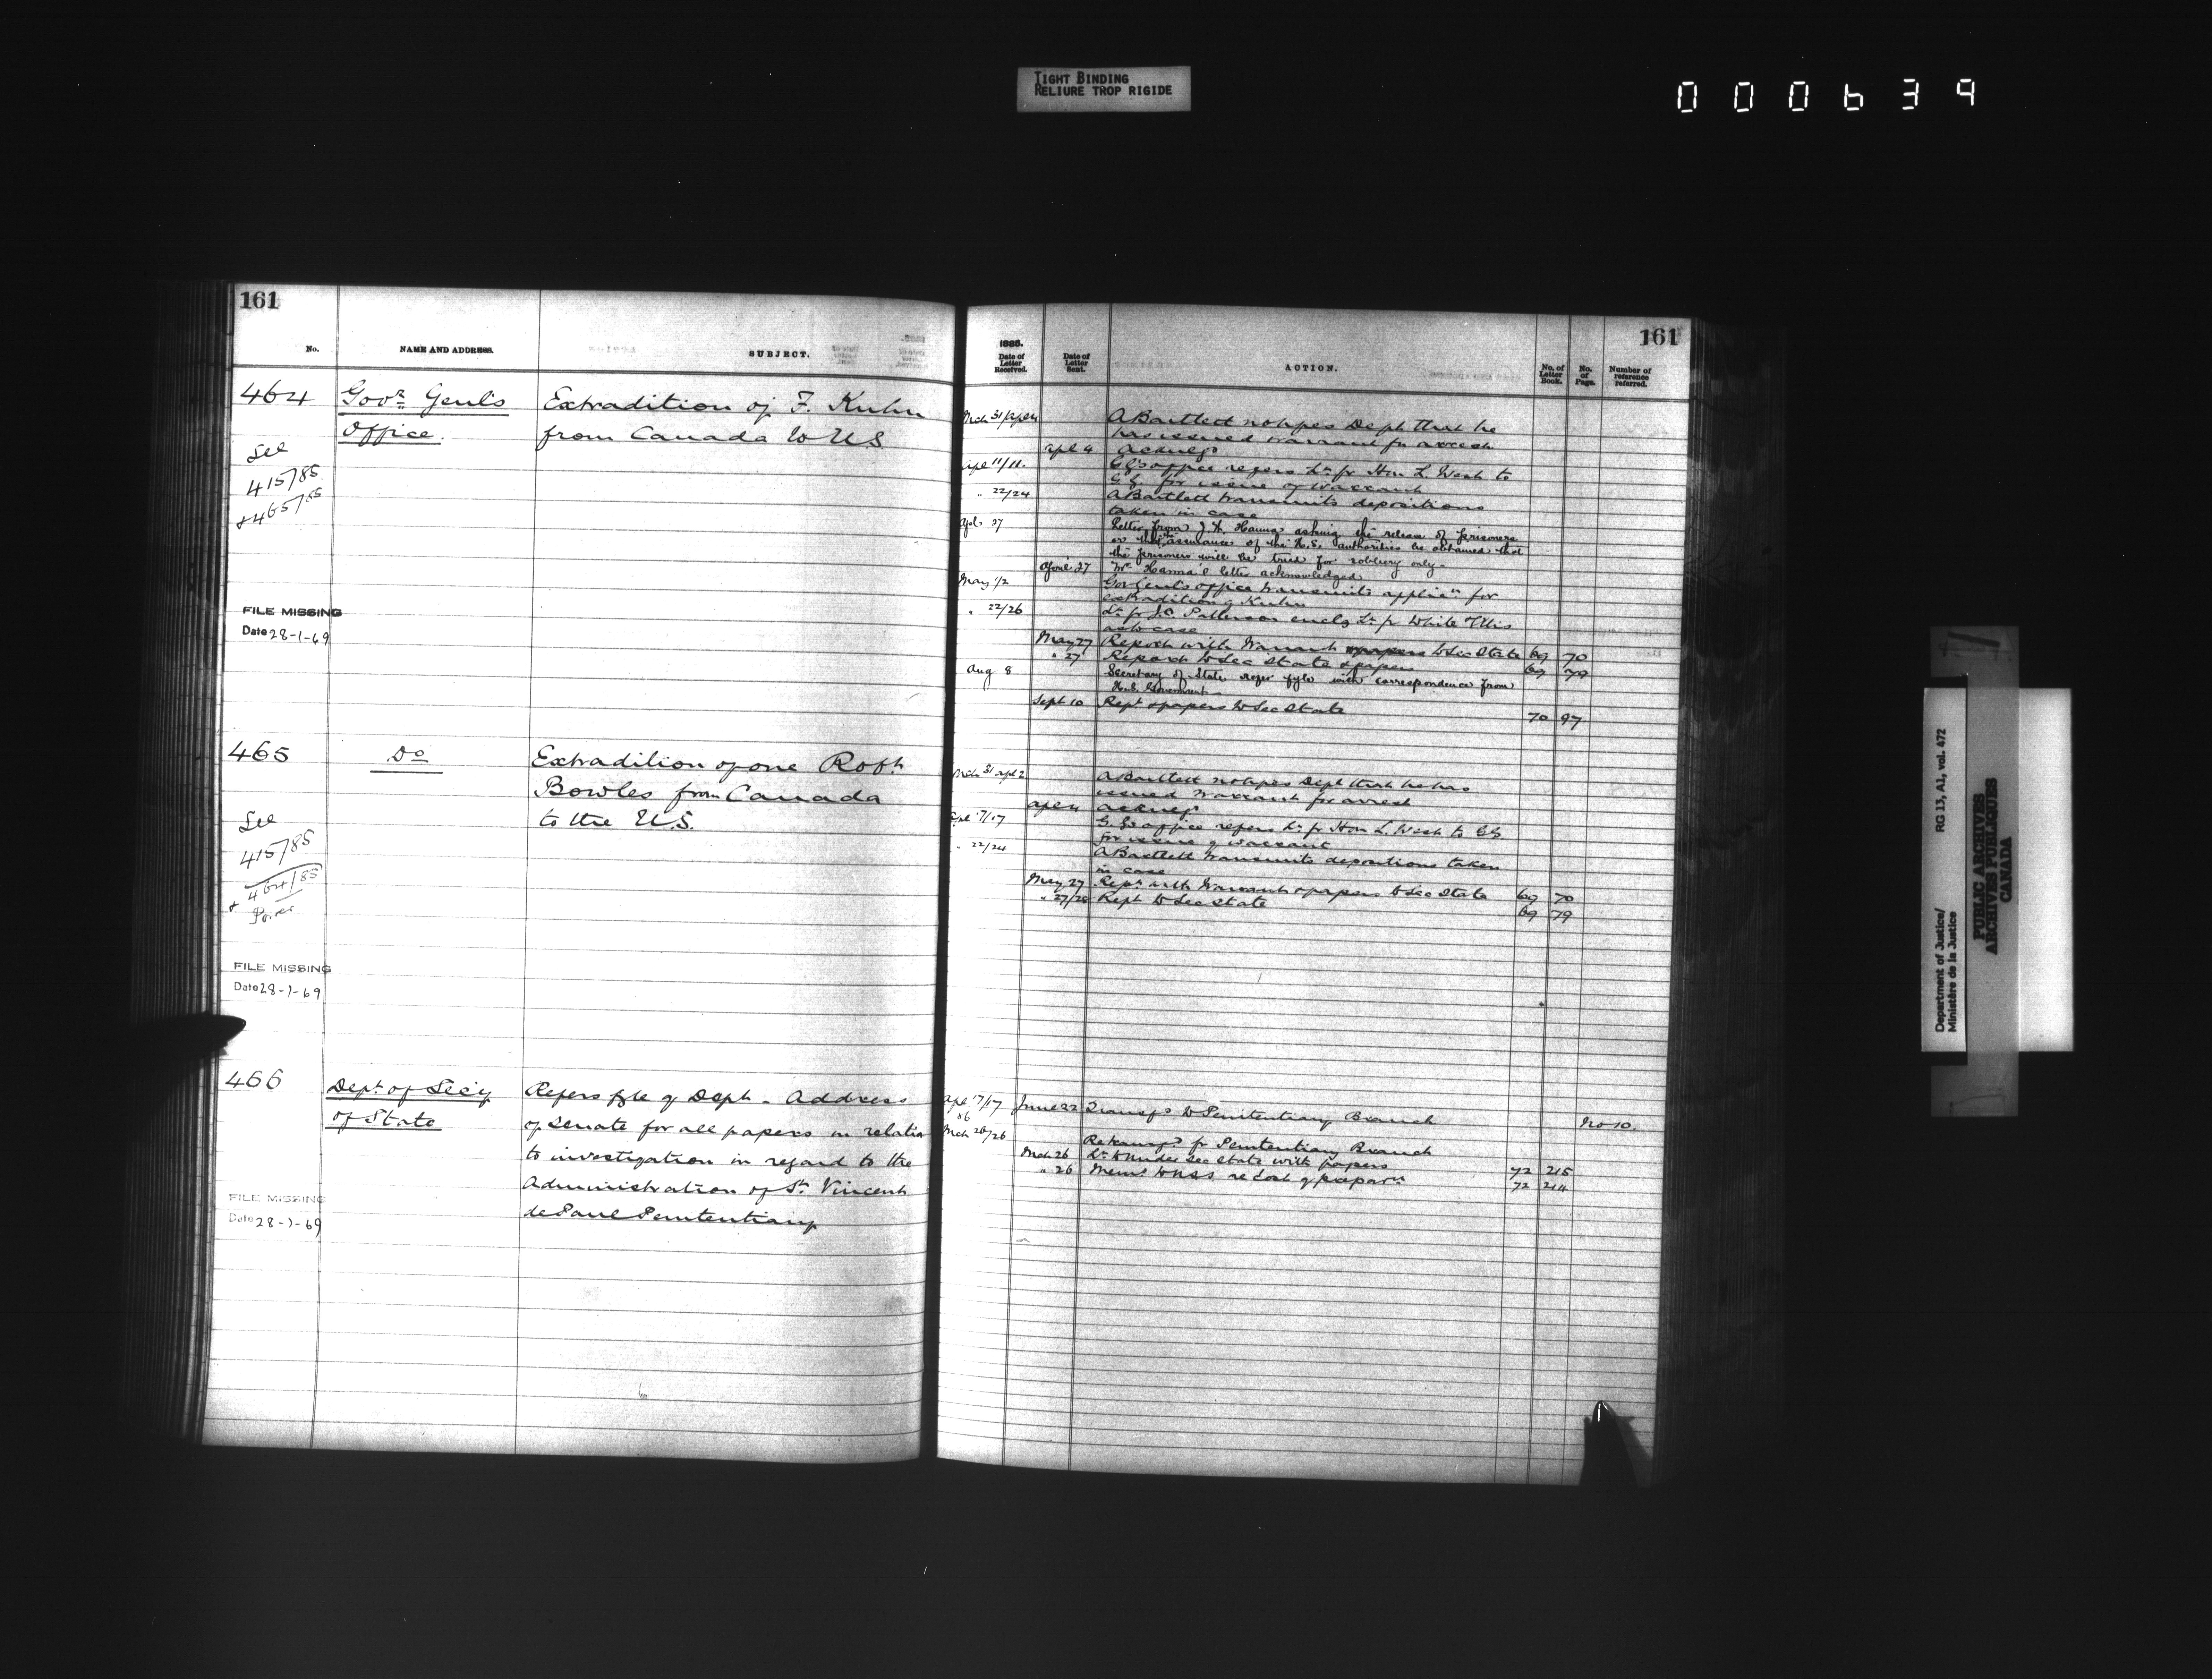 TIGHT BINDING
RELIURE TROP RIGIDE
000639
161
No.
NAME AND ADDRESS.
SUBJECT.
464
Govr. Genl's
Office.
Extradition of F. Kuhn
from Canada to U.S
See
415/85
+465/85
FILE MISSING
Date 28-1-69
465
Do
Extradition of one Robt.
Bowles from Canada
to the U.S.
See
415/85
+ 464/85
FILE MISSING
Date 28-1-69
466
Dept. of Secy
of State
Refers fyle of Dept. - Address
of Senate for all papers in relation
to investigation in regard to the
Administration of St. Vincent
de Paul Penitentiary
FILE MISSING
Date 28-1-69
161
1885.
Date of Letter Received.
Date of Letter Sent.
ACTION.
No. of Letter Book.
No. of Page.
Number of reference referred.
Mch 31/Apl 4 A Bartlett notifies Dept. that he
has issued warrant for arrest
Apl 4 Acknegd
Apl 11/11. G G's office refers Lr. fr Hon. L. West to
G.G. for issue of warrant
" 22/24 A Bartlett transmits depositions
taken in case
Apl. 27 Letter from J. A. Hanna asking the release of prisoners
or that assurance of the U.S. authorities be obtained that
the prisoners will be tried for robbery only.
April 27 Mr. Hanna's letter acknowledged
May 1/2 Gov Genl's office transmits applicn for
extradition of Kuhn
" 22/26 Lr. fr J.C. Patterson enclg Lr. fr White Ellis
as to case
May 27 Report with Warrant & papers to Sec State 69 70
" 27 Report to Sec State & papers 69 79
Aug 8 Secretary of State refer fyle with correspondence from
U.S. Government
Sept 10 Rept. & papers to Sec State 70 97
Mch 31 Apl 2 A Bartlett notifies Dept that he has
issued warrant for arrest
Apl 4 Acknegd
Apl 17/17 G.G's office refers Lr. fr Hon L. West to GG
for issue of warrant
" 22/24 A Bartlett transmits depositions taken
in case
May 27 Rept. with Warrant & papers to Sec State 69 70
" 27/28 Rept to Sec State 69 79
Apl 17/17 June 22 Transfd to Penitentiary Branch No 10.
86
Mch 26/26 Retransfd. fr Penitentiary Branch
Mch 26 Lr. to Under Sec State with papers 72 215
" 26 Memo. to re cost of preparn 72 214
Department of Justice/
Ministère de la Justice
RG 13, A1, vol. 472
PUBLIC ARCHIVES
ARCHIVES PUBLIQUES
CANADA